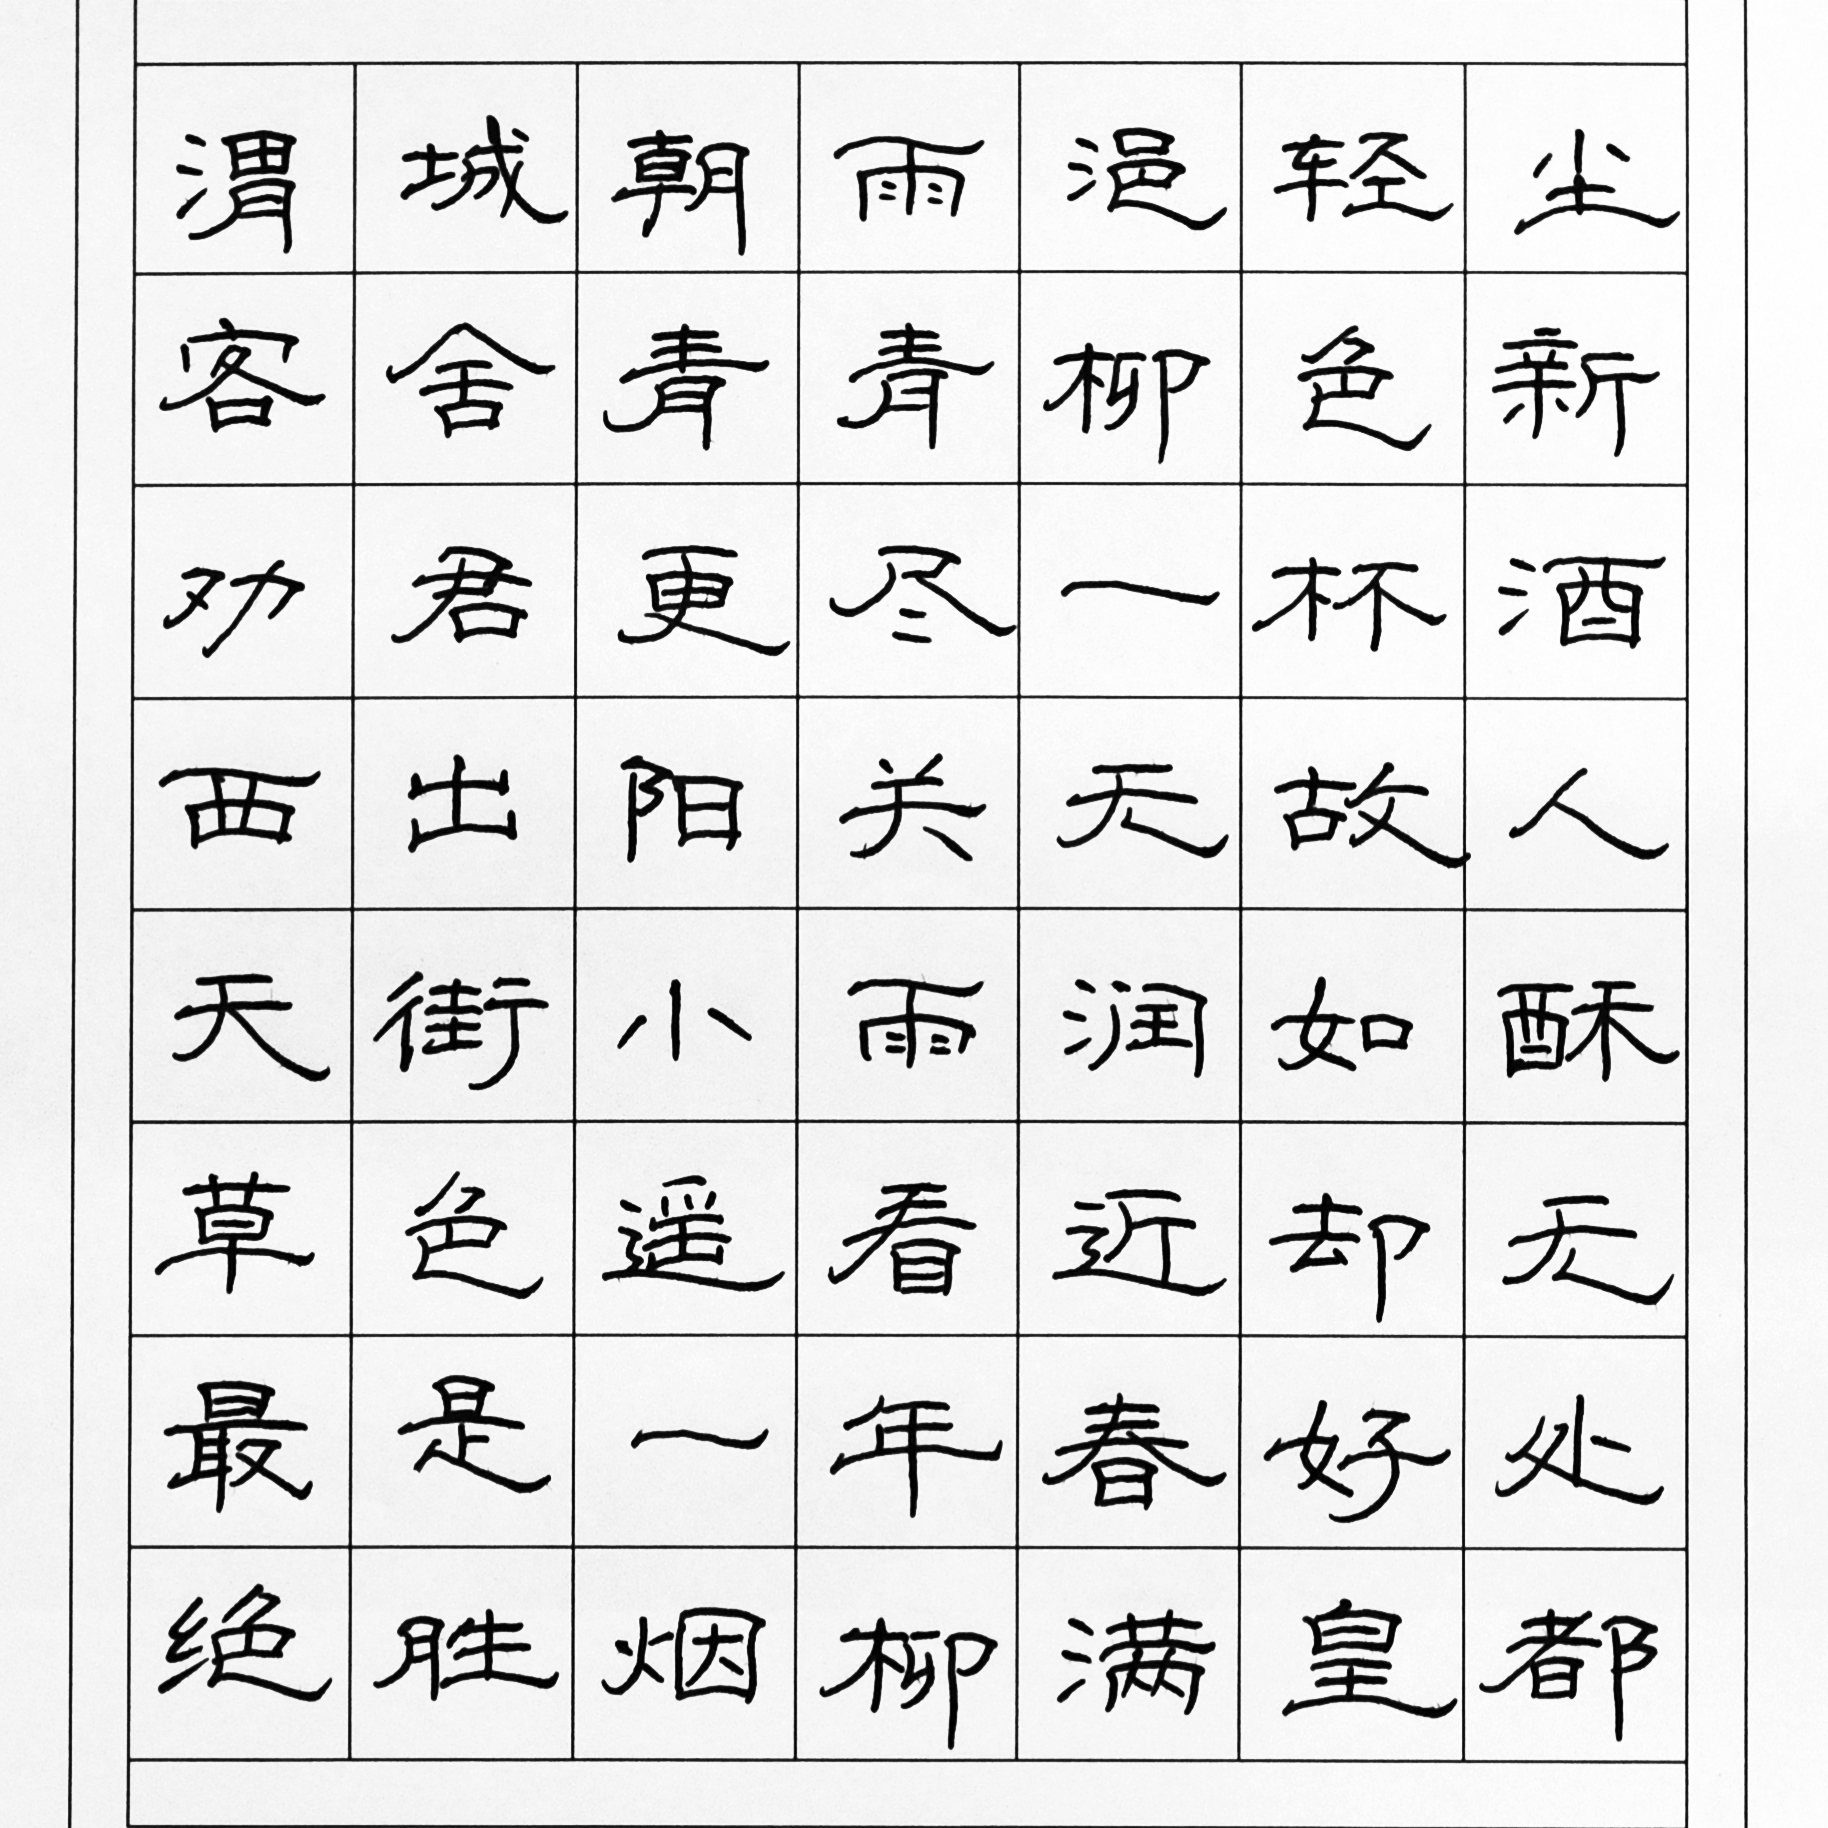 渭城朝雨浥轻尘
客舍青青柳色新
劝君更尽一杯酒
西出阳关无故人
天街小雨润如酥
草色遥看近却无
最是一年春好处
绝胜烟柳满皇都